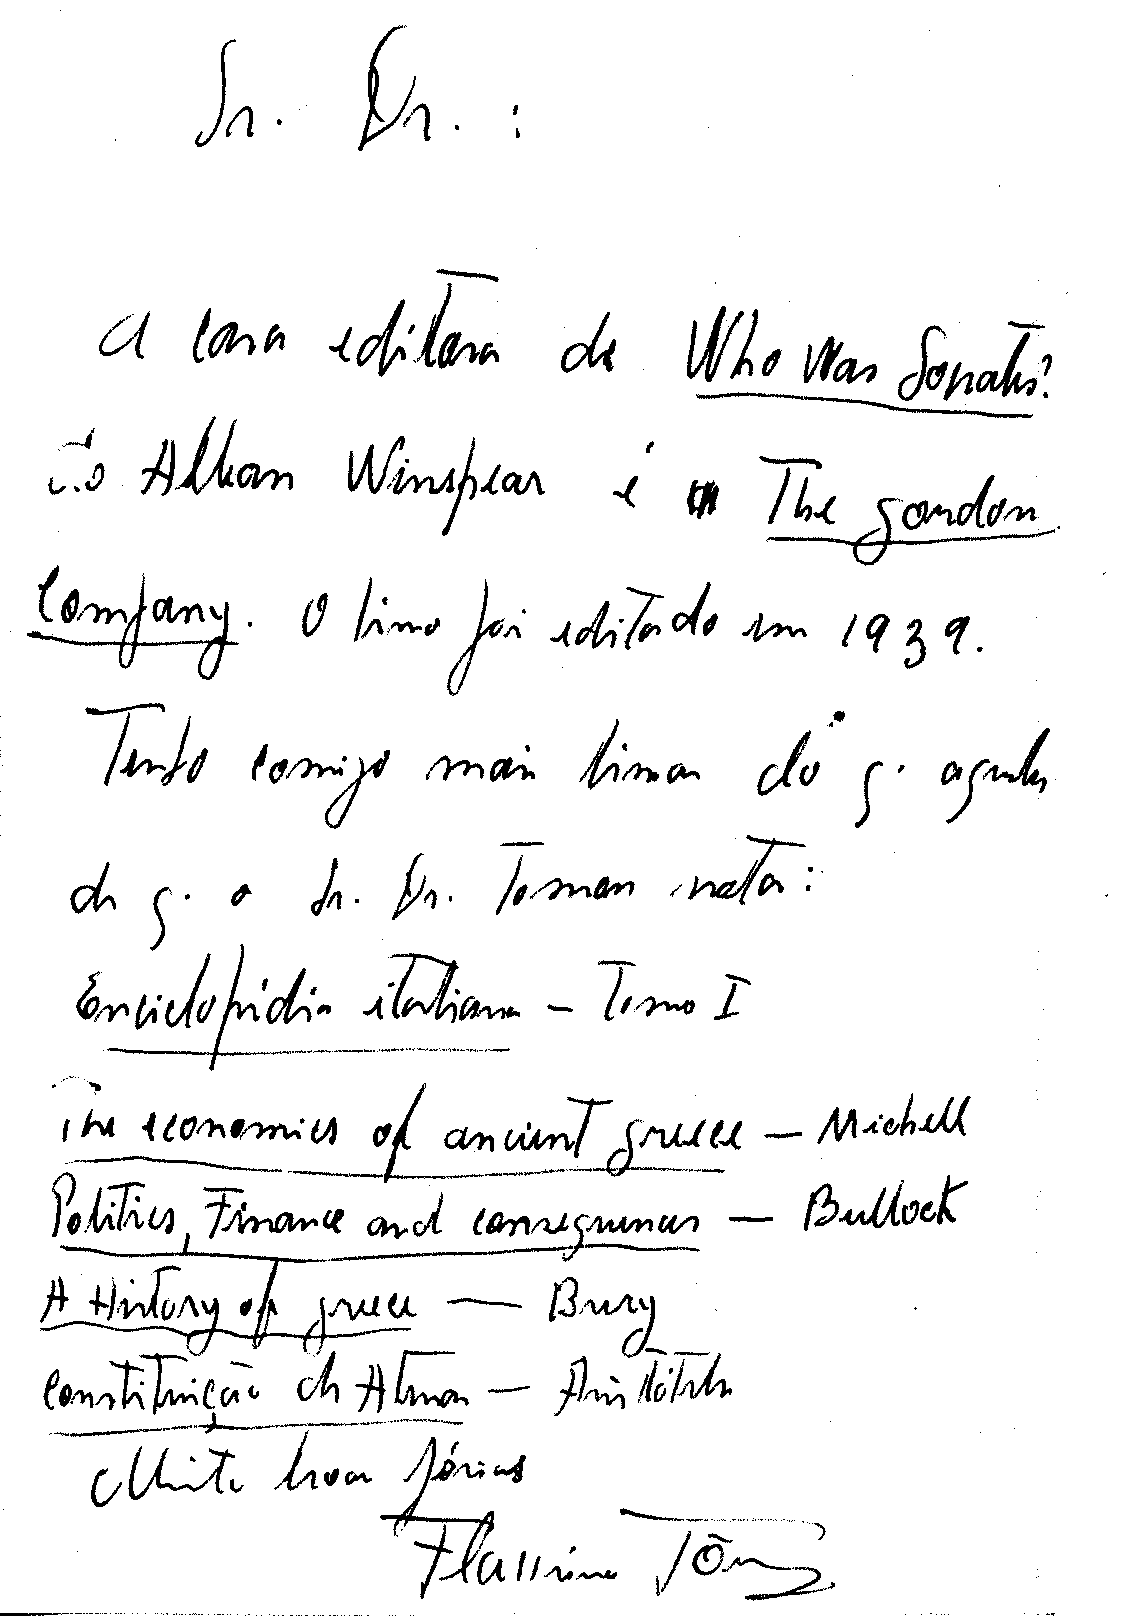 Sr. Dr. :
A casa editora de Who Was Socrates?
do Alban Winspear é The gordon
Company. O livro foi editado em 1939.
Tenho comigo mais livros do q. aqueles
de q. o Sr. Dr. Tomou nota:
Enciclopédia italiana – Tomo I
The economics of ancient greece – Michell
Politics, Finance and consequences – Bullock
A History of greece – Bury
Constituição de Atenas – Aristóteles
Muito boas férias